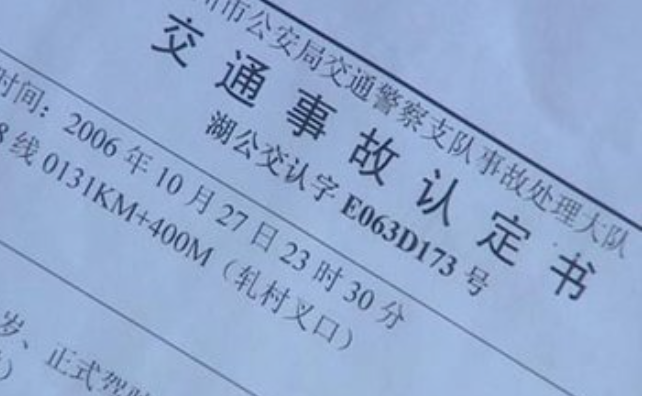 州市公安局交通警察支队事故处理大队
交通事故认定书
湖公交认字 E063D173 号
时间: 2006 年 10 月 27 日 23 时 30 分
8 线 0131KM+400M（轧村叉口）
岁、正式驾驶